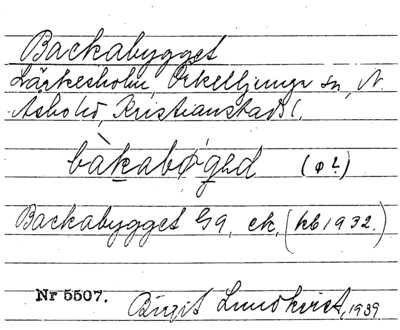 Backabygget
Lärkesholm, Örkelljunga sn, N.
Åsbo hd, Kristianstads l.
bàkabø̀gəd (ø !)
Backabygget G9, ek. (hb 1932.)
Nr 5507. Birgit Lundkvist, 1939